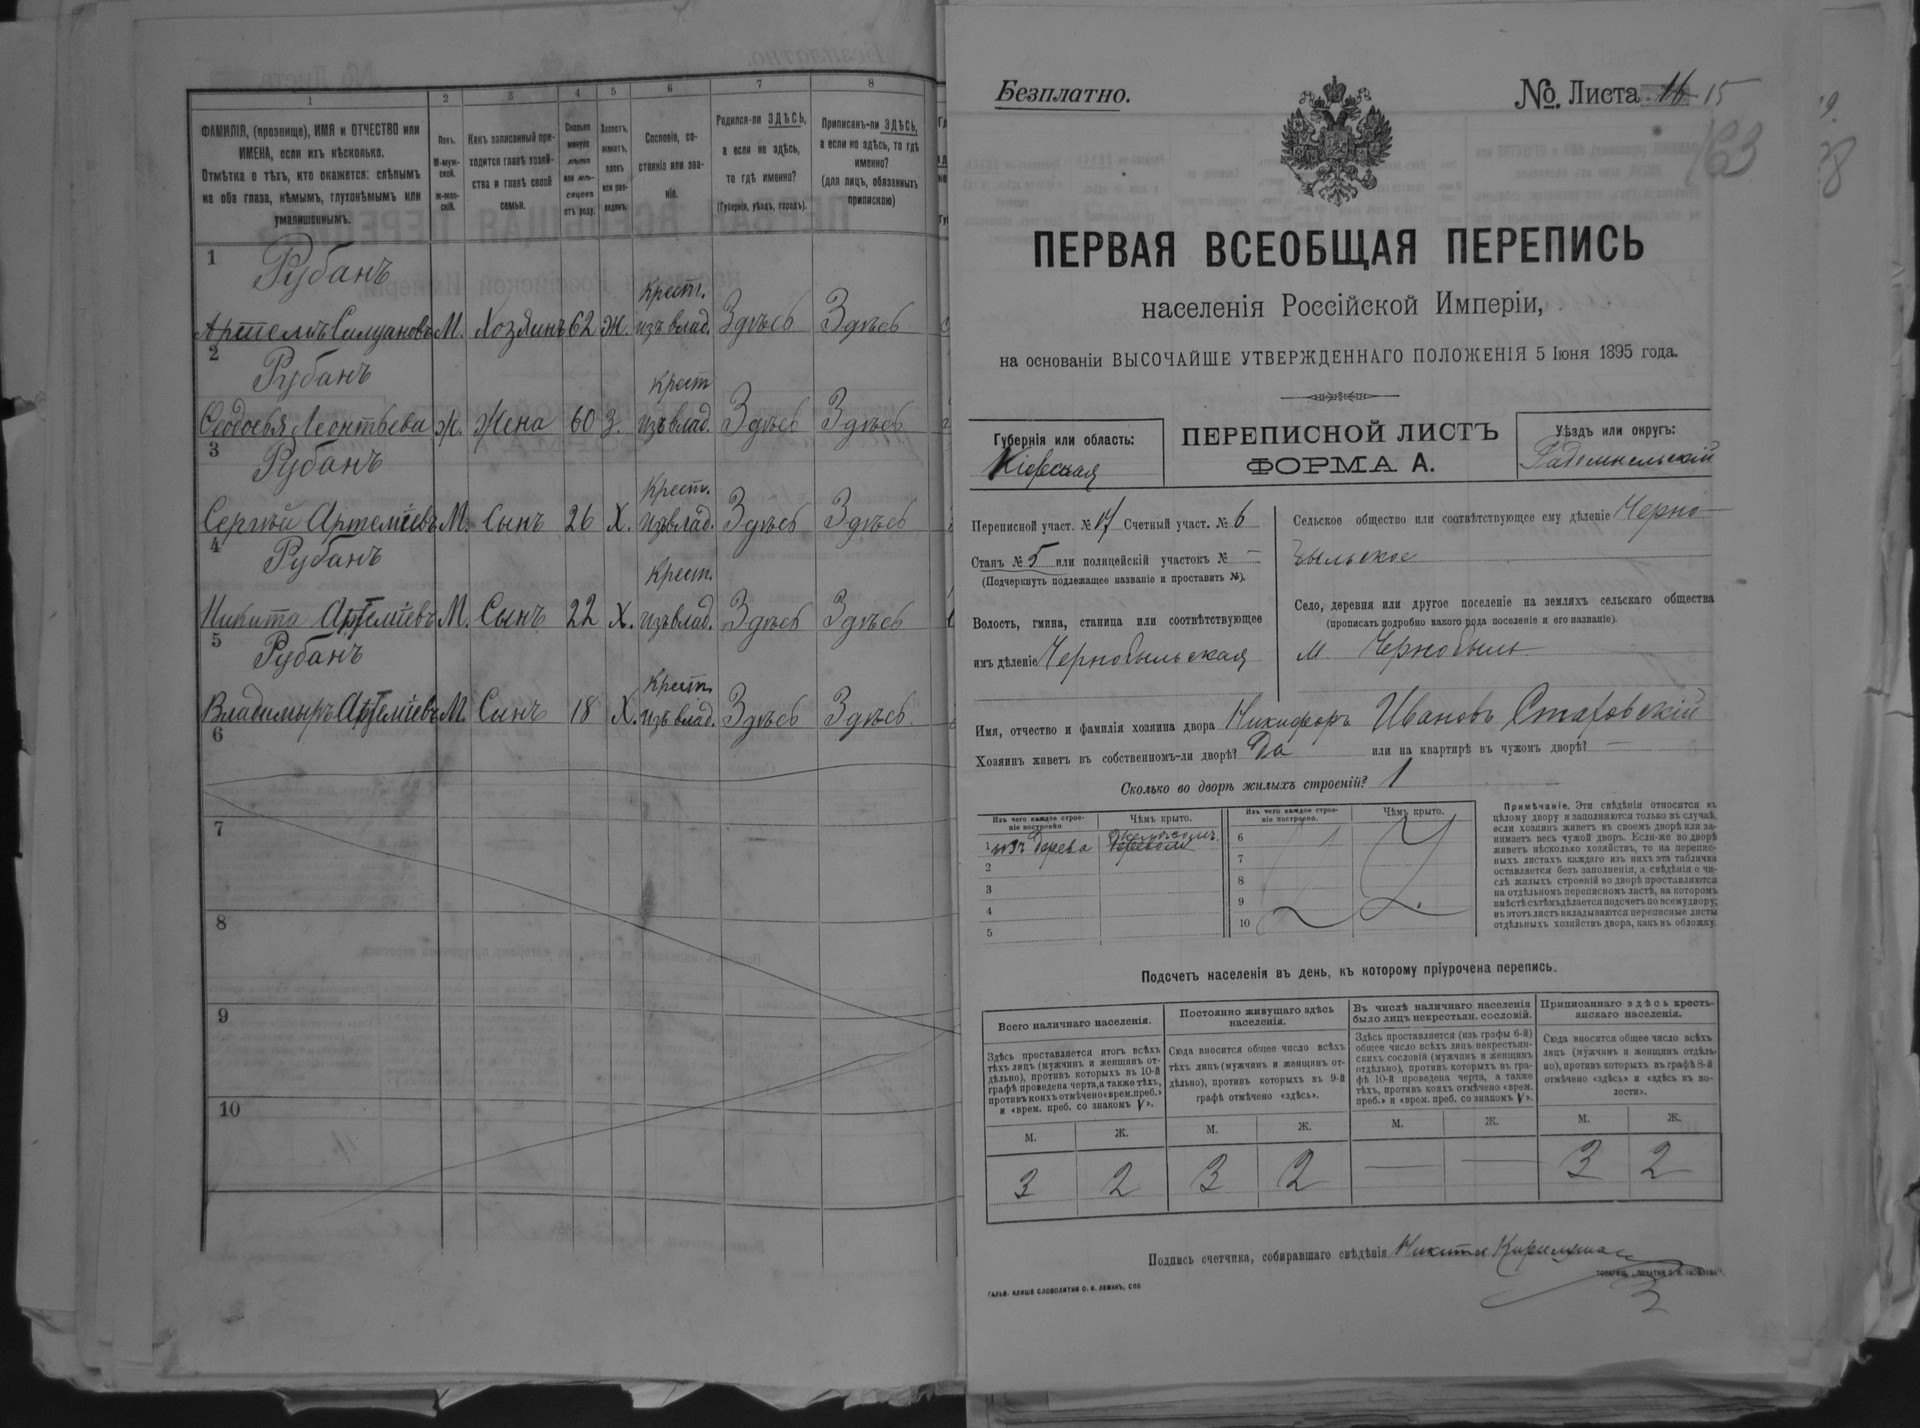 1 2 3 4 5 6 7 8
ФАМИЛІЯ, (прозвище), ИМЯ и ОТЧЕСТВО или ИМЕНА, если ихъ нѣсколько.
Отмѣтка о тѣхъ, кто окажется: слѣпымъ на оба глаза, нѣмымъ, глухонѣмымъ или умалишеннымъ.
Полъ. М-мужской. Ж-женскій.
Какъ записанный приходится главѣ хозяйства и главѣ своей семьи.
Сколько минуло лѣтъ или мѣсяцевъ отъ роду.
Холостъ, женатъ, вдовъ или разведенъ.
Сословіе, состояніе или званіе.
Родился-ли ЗДѢСЬ, а если не здѣсь, то гдѣ именно? (Губернія, уѣздъ, городъ).
Приписанъ-ли ЗДѢСЬ, а если не здѣсь, то гдѣ именно? (для лицъ, обязанныхъ припиской)
1 Рубанъ Крест.
М. Хозяинъ 62 Ж. изъ влад. Здѣсь Здѣсь
2 Рубанъ Крест
Феодосья Леонтьева Ж. Жена 60 З. изъ влад. Здѣсь Здѣсь
3 Рубанъ Крест.
Сергѣй Артеміевъ М. Сынъ 26 Х. изъ влад. Здѣсь Здѣсь
4 Рубанъ Крест.
Никита Артеміевъ М. Сынъ 22 Х. изъ влад. Здѣсь Здѣсь
5 Рубанъ Крест.
Владимиръ Артеміевъ М. Сынъ 18 Х. изъ влад. Здѣсь Здѣсь.
6
7
8
9
10
Безплатно.
№ Листа 16 15
163
ПЕРВАЯ ВСЕОБЩАЯ ПЕРЕПИСЬ
населенія Россійской Имперіи,
на основаніи ВЫСОЧАЙШЕ УТВЕРЖДЕННАГО ПОЛОЖЕНІЯ 5 Іюня 1895 года.
Губернія или область:
Кіевская
ПЕРЕПИСНОЙ ЛИСТЪ
ФОРМА А.
Уѣздъ или округъ:
Радомысльскій
Переписной участ. № 17 Счетный участ. № 6
Станъ № 5 или полицейскій участокъ № —
(Подчеркнуть подлежащее названіе и проставить №).
Волость, гмина, станица или соотвѣтствующее
имъ дѣленіе Чернобыльская
Сельское общество или соотвѣтствующее ему дѣленіе Черно-
быльское
Село, деревня или другое поселеніе на земляхъ сельскаго общества
(прописать подробно какого рода поселеніе и его названіе).
м. Чернобыль
Имя, отчество и фамилія хозяина двора Никифоръ Ивановъ Стаховскій
Хозяинъ живетъ въ собственномъ-ли дворѣ? Да или на квартирѣ въ чужомъ дворѣ? —
Сколько во дворѣ жилыхъ строеній? 1
Изъ чего каждое строеніе построено. Чѣмъ крыто. Изъ чего каждое строеніе построено. Чѣмъ крыто.
1 изъ дерева 6
2 7
3 8
4 9
5 10
Примѣчаніе. Эти свѣдѣнія относятся къ
цѣлому двору и заполняются только въ случаѣ,
если хозяинъ живетъ въ своемъ дворѣ или занимаетъ
весь чужой дворъ. Если-же во дворѣ
живетъ нѣсколько хозяйствъ, то на переписныхъ
листахъ каждаго изъ нихъ эта табличка
оставляется безъ заполненія, а свѣдѣнія о числѣ
жилыхъ строеній во дворѣ проставляются
на отдѣльномъ переписномъ листѣ, на которомъ
вмѣстѣ съ тѣмъ дѣлается подсчетъ по всему двору;
въ этотъ листъ вкладываются переписные листы
отдѣльныхъ хозяйствъ двора, какъ въ обложку.
Подсчетъ населенія въ день, къ которому пріурочена перепись.
Всего наличнаго населенія.
Здѣсь проставляется итогъ всѣхъ
тѣхъ лицъ (мужчинъ и женщинъ отдѣльно),
противъ которыхъ въ 10-й
графѣ проведена черта, а также тѣхъ,
противъ коихъ отмѣчено «врем. преб.»
и «врем. преб. со знакомъ V».
Постоянно живущаго здѣсь населенія.
Сюда вносится общее число всѣхъ
тѣхъ лицъ (мужчинъ и женщинъ отдѣльно),
противъ которыхъ въ 9-й
графѣ отмѣчено «здѣсь».
Въ числѣ наличнаго населенія было лицъ некрестьян. сословій.
Здѣсь проставляется (изъ графы 6-й)
общее число всѣхъ лицъ некрестьянскихъ
сословій (мужчинъ и женщинъ
отдѣльно), противъ которыхъ въ графѣ
10-й проведена черта, а также
тѣхъ, противъ коихъ отмѣчено «врем.
преб.» и «врем. преб. со знакомъ V».
Приписаннаго здѣсь крестьянскаго населенія.
Сюда вносится общее число всѣхъ
лицъ (мужчинъ и женщинъ отдѣльно),
противъ которыхъ въ графѣ 8-й
отмѣчено «здѣсь» и «здѣсь къ волости».
М. Ж. М. Ж. М. Ж. М. Ж.
3 2 3 2 — — 3 2
Подпись счетчика, собиравшаго свѣдѣнія Никита
ГАЛЬВ. КЛИШЕ СЛОВОЛИТНИ О. И. ЛЕМАНЪ, СПБ.